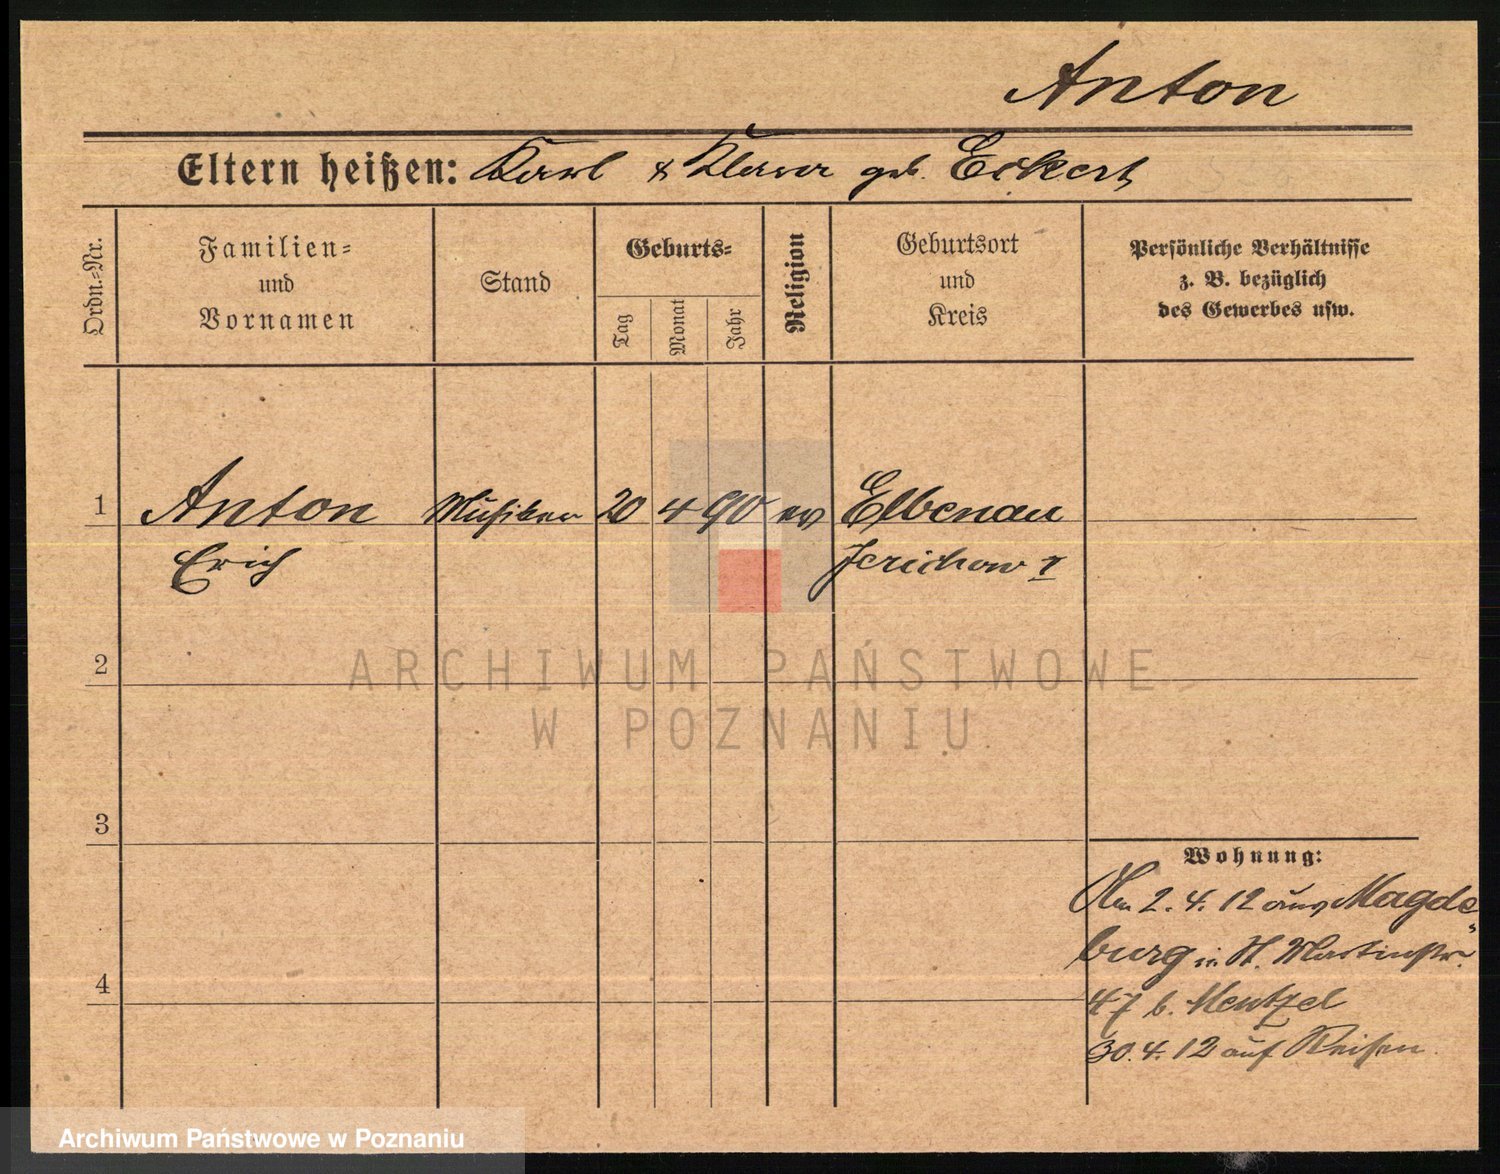 Anton
Eltern heißen: Karl & Klara geb. Eckert
Ordn.=Nr.
Familien=
und
Vornamen
Stand
Geburts=
Tag
Monat
Jahr
Religion
Geburtsort
und
Kreis
Persönliche Verhältnisse
z. B. bezüglich
des Gewerbes usw.
1 Anton Musiker 20 4 90 ev Elbenau
Erich Jerichow I
2
3
4
Wohnung:
Am 2. 4. 12 aus Magde
burg in St. Martinstr.
47 b. Mentzel
30. 4. 12 auf Reisen
ARCHIWUM PAŃSTWOWE
W POZNANIU
Archiwum Państwowe w Poznaniu